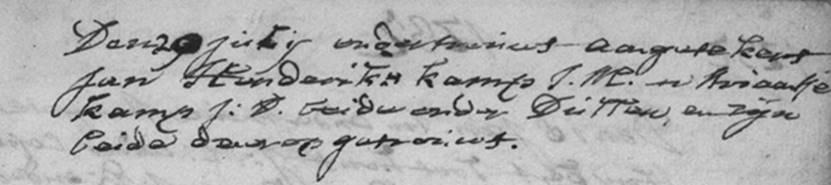 Den 29 julij ondertrouws aangetekent
Jan Hinderikx kamp J: M. en Ariaantje
kamp J: D. beide onder Dutten, en zijn
beide daer op getrouwt.